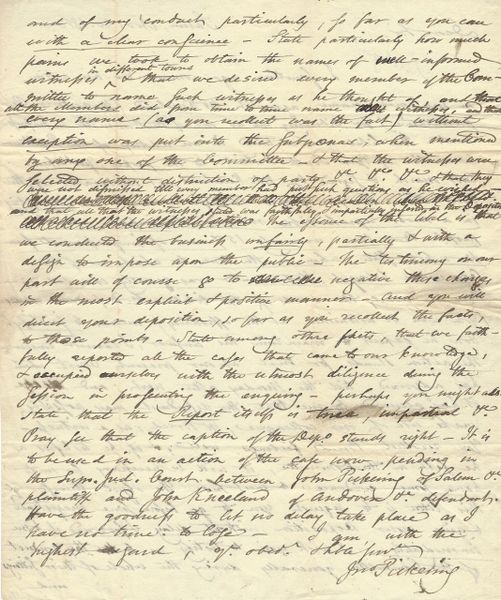 and of my conduct particularly, so far as you can
with a clear conscience – State particularly how much
pains we took to obtain the names of well-informed
witnesses in different towns & that we desired every member of the Com-
mittee to name such witnesses as he thought and that
all the members did from time to time name witnesses, and that
every name (as you recollect was the fact) without
exception was put into the Subpœnas, when mentioned
by any one of the Committee – & that the witnesses were
selected without distinction of party &c &c &c & that they
were not dismissed till every member had put such questions as he wished
and that all that the witnesses stated was faithfully & impartially
the essence of the libel is that
we conducted the business unfairly, partially & with a
design to impose upon the public – The testimony on our
part will of course go to negative these charges
in the most explicit & positive manner – and you will
direct your deposition, so far as you recollect the facts,
to those points – State among other facts, that we faith
fully reported all the cases that came to our knowledge,
& occupied ourselves with the utmost diligence during the
session in prosecuting the enquiry – perhaps you might also
state, that the Report itself is true, impartial &c
Pray see that the caption of the Depo stands right – It is
to be used in an action of the case now pending in
the Sup. Jud. Court between John Pickering of Salem &c
plaintiff and John Kneeland of Andover &c defendant.
Have the goodness to let no delay take place as I
have no time to lose – I am with the
highest regard, yr obedt & hble Servt
Jno Pickering